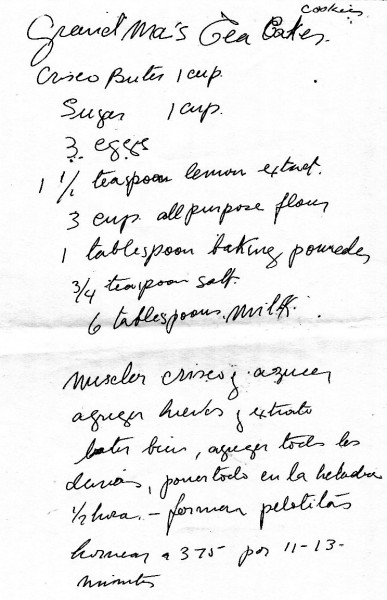 cookies
Grand Ma's Tea Cakes.
Crisco Buter 1 cup.
Sugar 1 cup.
3 eggs
1 1/2 teaspoon lemon extract.
3 cup all purpose flour
1 tablespoon baking powder
3/4 teaspoon salt.
6 tablespoons milk.
Mezclar crisco y azucar
agregar huevos y extrato
bater bien, agregar todo los
demas, poner todo en la heladera
1/2 hora. - formar pelotitas
hornear a 375 por 11-13-
minutos